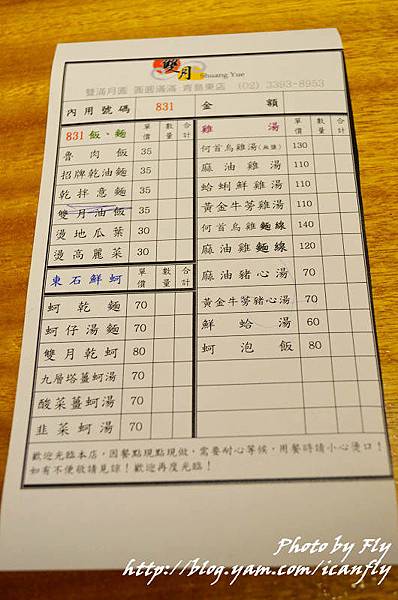 雙月 Shuang Yue
雙滿月圓 圓圓滿滿 青島東店 (02) 3393-8953
內用號碼 831 金額
831 飯、麵 單價 數量 合計
魯肉飯 35
招牌乾油麵 35
乾拌意麵 35
雙月油飯 35
燙地瓜葉 30
燙高麗菜 30
東石鮮蚵 單價 數量 合計
蚵乾麵 70
蚵仔湯麵 70
雙月乾蚵 80
九層塔薑蚵湯 70
酸菜薑蚵湯 70
韭菜蚵湯 70
雞湯 單價 數量 合計
何首烏雞湯(無鹽) 130
麻油雞湯 110
蛤蜊鮮雞湯 110
黃金牛蒡雞湯 110
何首烏雞麵線 140
麻油雞麵線 120
麻油豬心湯 70
黃金牛蒡豬心湯 70
鮮蛤湯 60
蚵泡飯 80
歡迎光臨本店，因餐點現點現做，需要耐心等候，用餐時請小心燙口！
如有不便敬請見諒！歡迎再度光臨！
Photo by Fly
http://blog.yam.com/icanfly